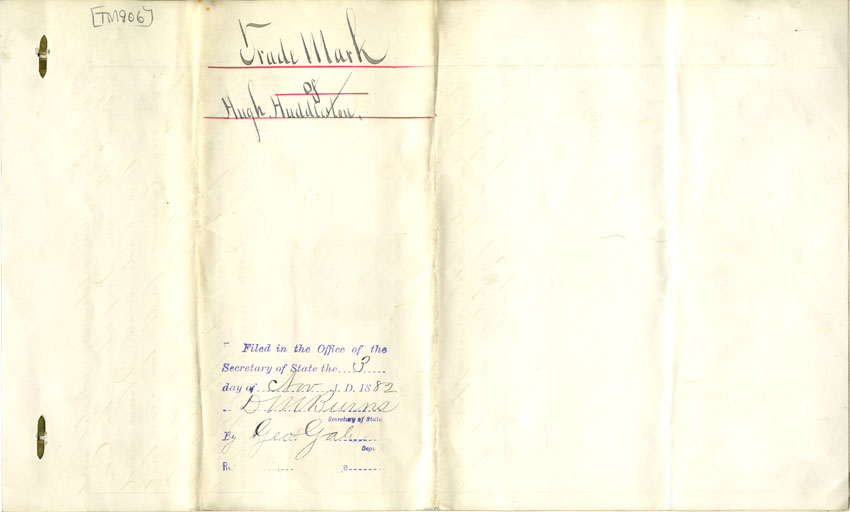 [TM906]
Trade Mark
of
Hugh Huddleston.
Filed in the Office of the
Secretary of State the 3
day of Nov A. D. 1882
D M Burns
Secretary of State.
By Geo.
Dep.